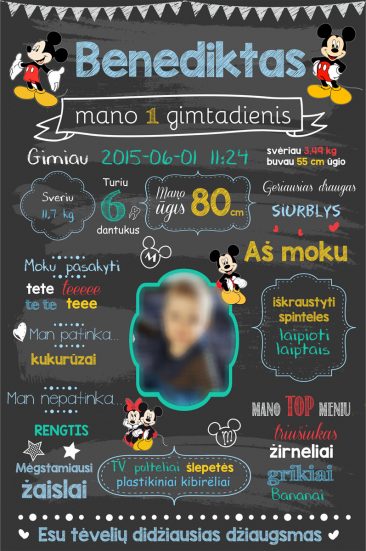 Benediktas
mano 1 gimtadienis
Gimiau 2015-06-01 11:24
svėriau 3,49 kg
buvau 55 cm ūgio
Sveriu
11,7 kg
Turiu
6
dantukus
Mano
ūgis 80 cm
Geriausias draugas
SIURBLYS
Aš moku
iškraustyti
spinteles
laipioti
laiptais
Moku pasakyti
tete teeeee
te te te teee
Man patinka...
kukurūzai
Man nepatinka...
RENGTIS
Mėgstamiausi
žaislai
TV pulteliai šlepetės
plastikiniai kibirėliai
MANO TOP MENIU
triušiukas
žirneliai
grikiai
Bananai
Esu tėvelių didžiausias džiaugsmas